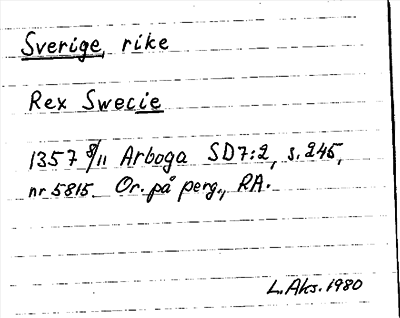 Sverige, rike
Rex Swecie
1357 8/11 Arboga SD7:2, s. 245,
nr 5815. Or. på perg., RA.
L. Aks. 1980